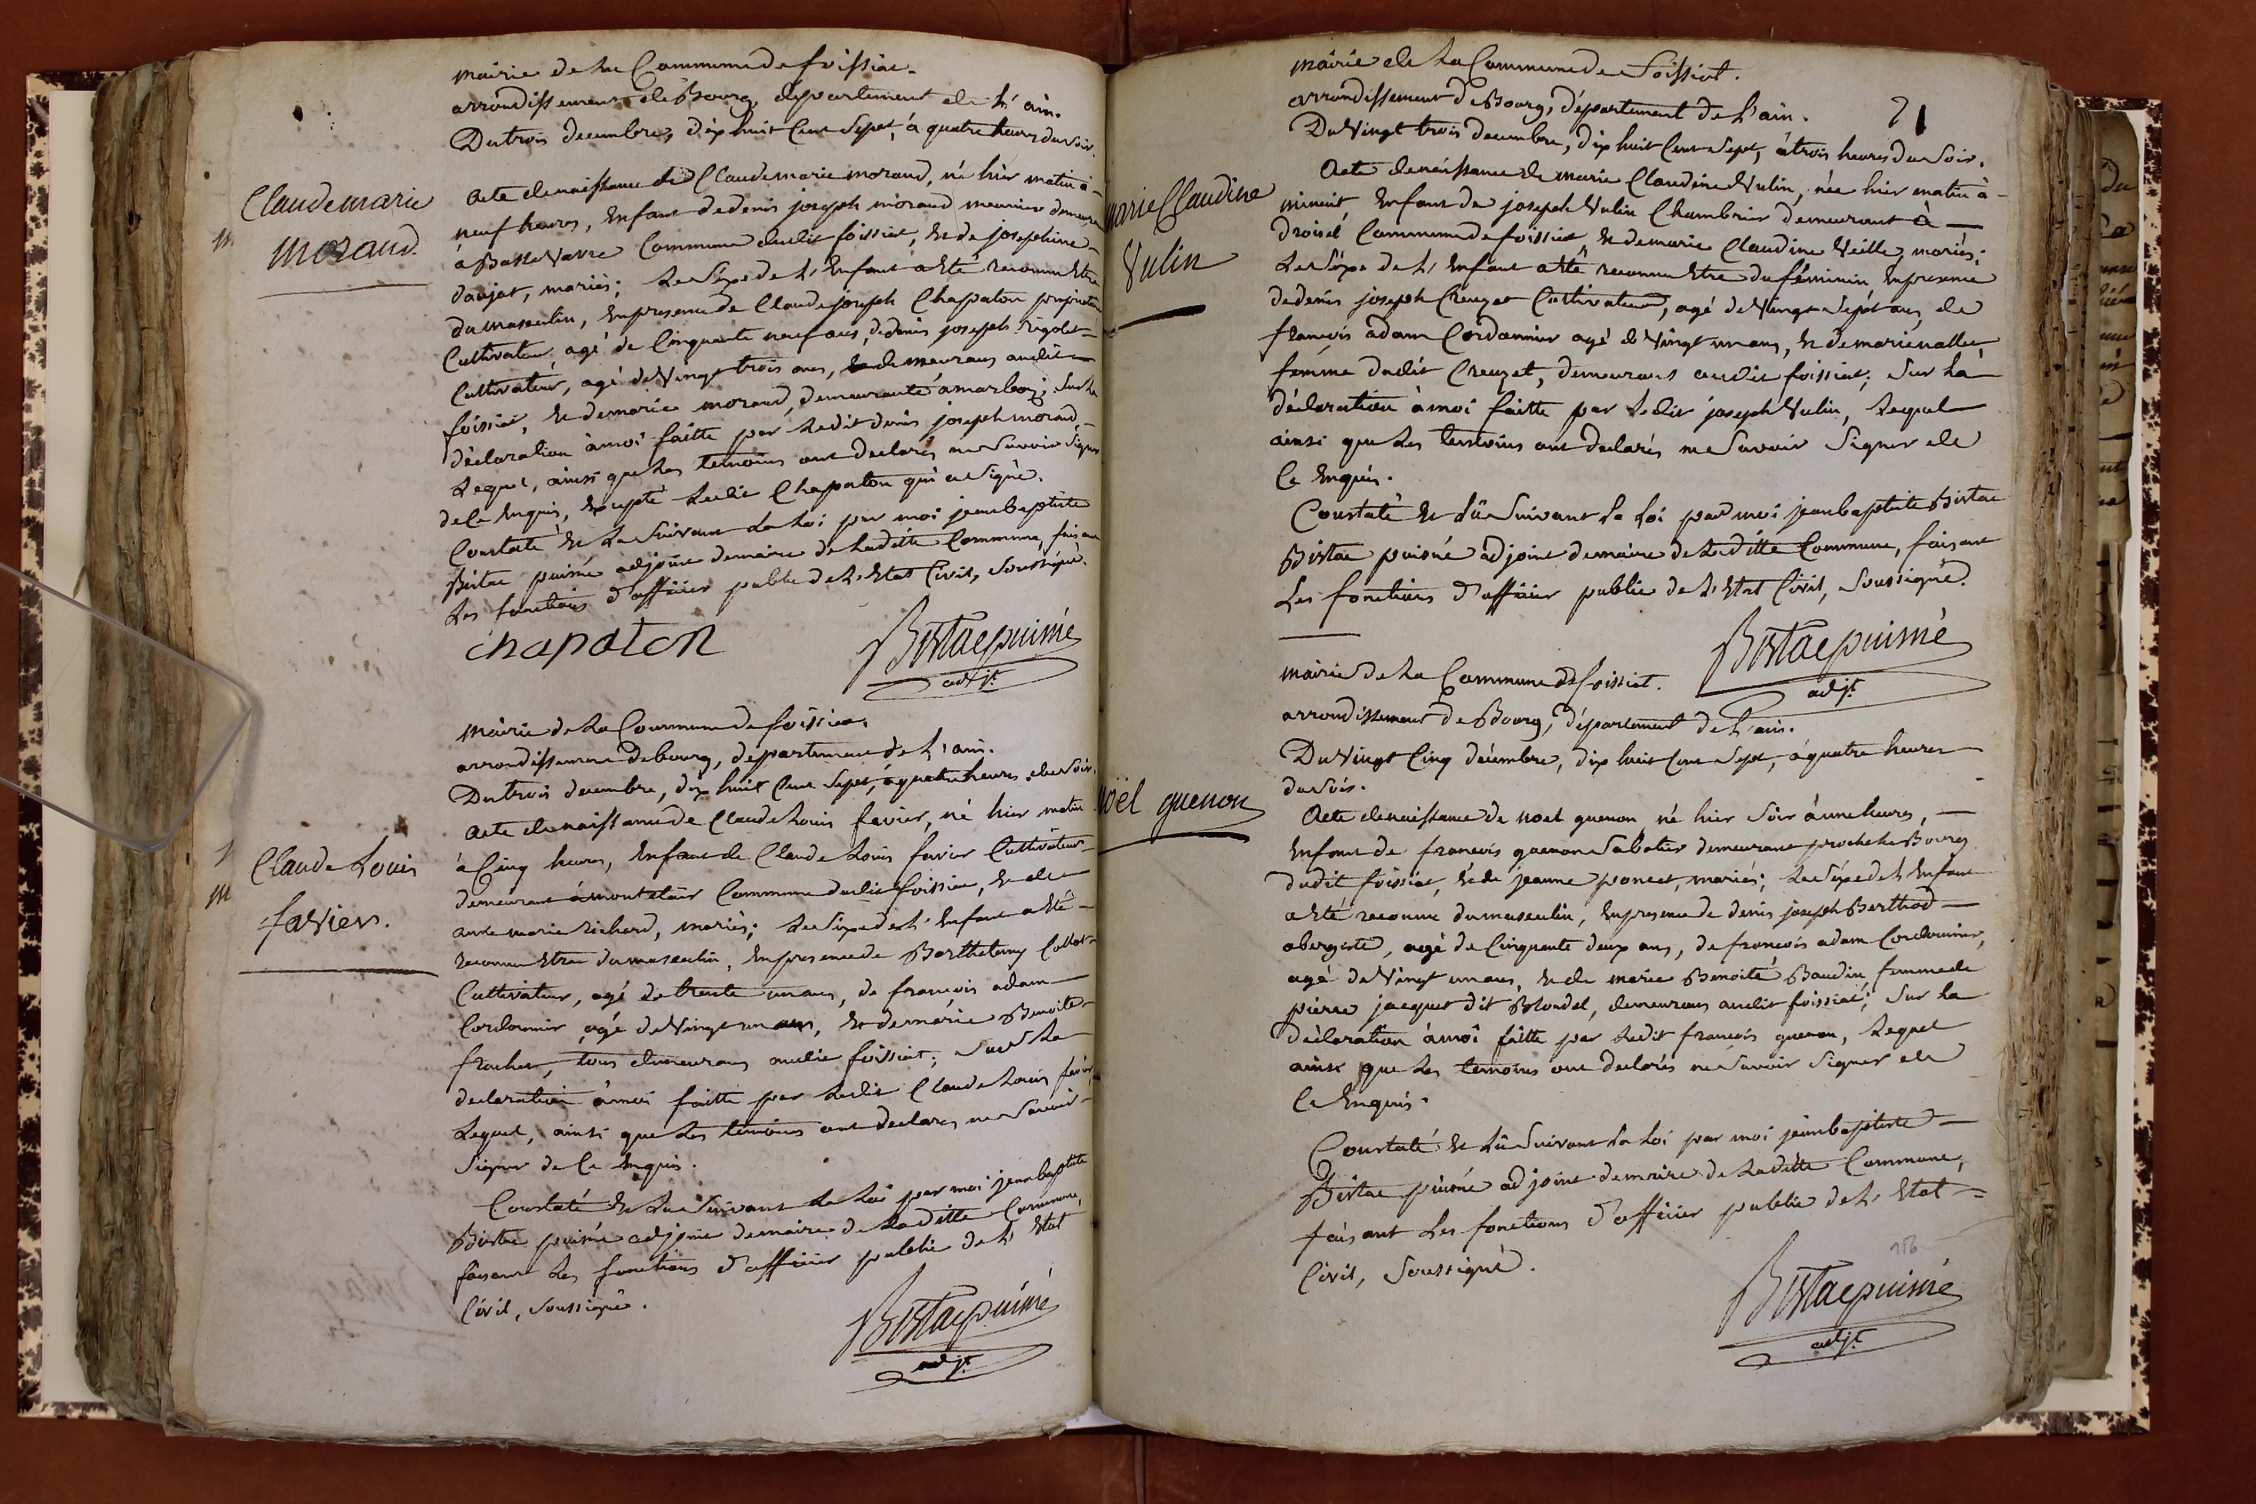 mairie de la Commune de foissiat.
arrondissement de Bourg, departement de l'ain.
Du trois decembre, dix huit Cent Sept, à quatre heures du soir.
Claudemarie
morand.
m
acte de naissance de Claudemarie morand, né hier matin à
neuf heures, Enfant de denis joseph morand meunier demeurant
à Basse Vavre Commune dudit foissiat, Et de josephine
daujat, mariés; Le Sexe de L'Enfant a Eté reconnu Etre
du masculin, En presence de Claude joseph Chapaton proprietaire
Cultivateur agé de Cinquante neuf ans, de denis joseph Rigolet
Cultivateur, agé de Vingt trois ans, demeurans audit
foissiat, Et de marie morand, demeurante à marboz; Sur la
déclaration à moi faitte par Ledit denis joseph morand,
Lequel, ainsi que Les temoins ont declarés ne Savoir Signer
de Ce Enquis, Excepté Ledit Chapaton qui a Signé.
Constaté Et Lu Suivant La Loi par moi jean baptiste
Bistac puisné adjoint de maire de Laditte Commune, faisant
Les fonctions d'officier public de L'Etat Civil, Soussigné.
chapaton
Bistac puiné
adjt.
mairie de La Commune de foissiat.
arrondissement de bourg, departement de L'ain.
Du trois decembre, dix huit Cent Sept, à quatre heures du Soir.
Claude Louis
favier.
m
acte de naissance de Claude Louis favier, né hier matin
à Cinq heures, Enfant de Claude Louis favier Cultivateur
demeurant à Commune dudit foissiat, Et de
anne marie richard, mariés; Le Sexe de L'Enfant a Eté
reconnu Etre du masculin, En presence de Barthelemy
Cultivateur, agé de trente un ans, de francois adam
Cordonnier, agé de Vingt un ans, Et de marie Benoite
tous demeurans audit foissiat; Sur La
declaration à moi faitte par Ledit Claude Louis favier,
Lequel, ainsi que Les temoins ont declarés ne Savoir
Signer de Ce Enquis.
Constaté Et Lu Suivant La Loi par moi jean baptiste
Bistac puisné adjoint de maire de Laditte Commune,
faisant Les fonctions d'officier public de L'Etat
Civil, Soussigné.
Bistac puiné
adjt.
mairie de La Commune de Foissiat.
71
arrondissement de Bourg, département de L'ain.
Du Vingt trois decembre, dix huit Cent Sept, à trois heures du Soir.
marie Claudine
Vulin
Acte de naissance de marie Claudine Vulin, née hier matin à
minuit Enfant de joseph Vulin Chambrier demeurant à
droisel Commune de foissiat, Et de marie Claudine Veille, mariés;
Le Sexe de L'Enfant a Eté reconnu Etre du féminin, En presence
de denis joseph Creuzet Cultivateur, agé de Vingt Sept ans, de
francois adam Cordonnier agé de Vingt un ans, Et de marie
femme dudit Creuzet, demeurans audit foissiat; Sur La
déclaration à moi faitte par Ledit joseph Vulin, Lequel
ainsi que Les temoins ont declarés ne Savoir Signer de
Ce Enquis.
Constaté Et Lû Suivant La Loi par moi jean baptiste Bistac
Bistac puisné adjoint de maire de Laditte Commune, faisant
Les fonctions d'officier public de L'Etat Civil, Soussigné.
Bistac puiné
adjt.
mairie de La Commune de foissiat.
arrondissement de Bourg, département de L'ain.
Du Vingt Cinq décembre, dix huit Cent Sept, à quatre heures
du Soir.
noël quenon
Acte de naissance de noel quenon né hier Soir à une heures,
Enfant de francois quenon Sabotier demeurant proche le Bourg
dudit foissiat, Et de jeanne poncet, mariés; Le Sexe de L'Enfant
a Eté reconnu du masculin, En presence de denis joseph Berthod
obergiste, agé de Cinquante deux ans, de francois adam Cordonnier,
agé de Vingt un ans, Et de marie Benoite Baudin femme de
pierre jacquet dit Blondel, demeurans audit foissiat; Sur La
déclaration à moi faitte par Ledit francois quenon, Lequel
ainsi que Les temoins ont declarés ne Savoir Signer de
Ce Enquis.
Constaté Et Lû Suivant La Loi par moi jean baptiste
Bistac puisné adjoint de maire de Laditte Commune,
faisant Les fonctions d'officier public de L'Etat
Civil, Soussigné.
Bistac puiné
adjt.